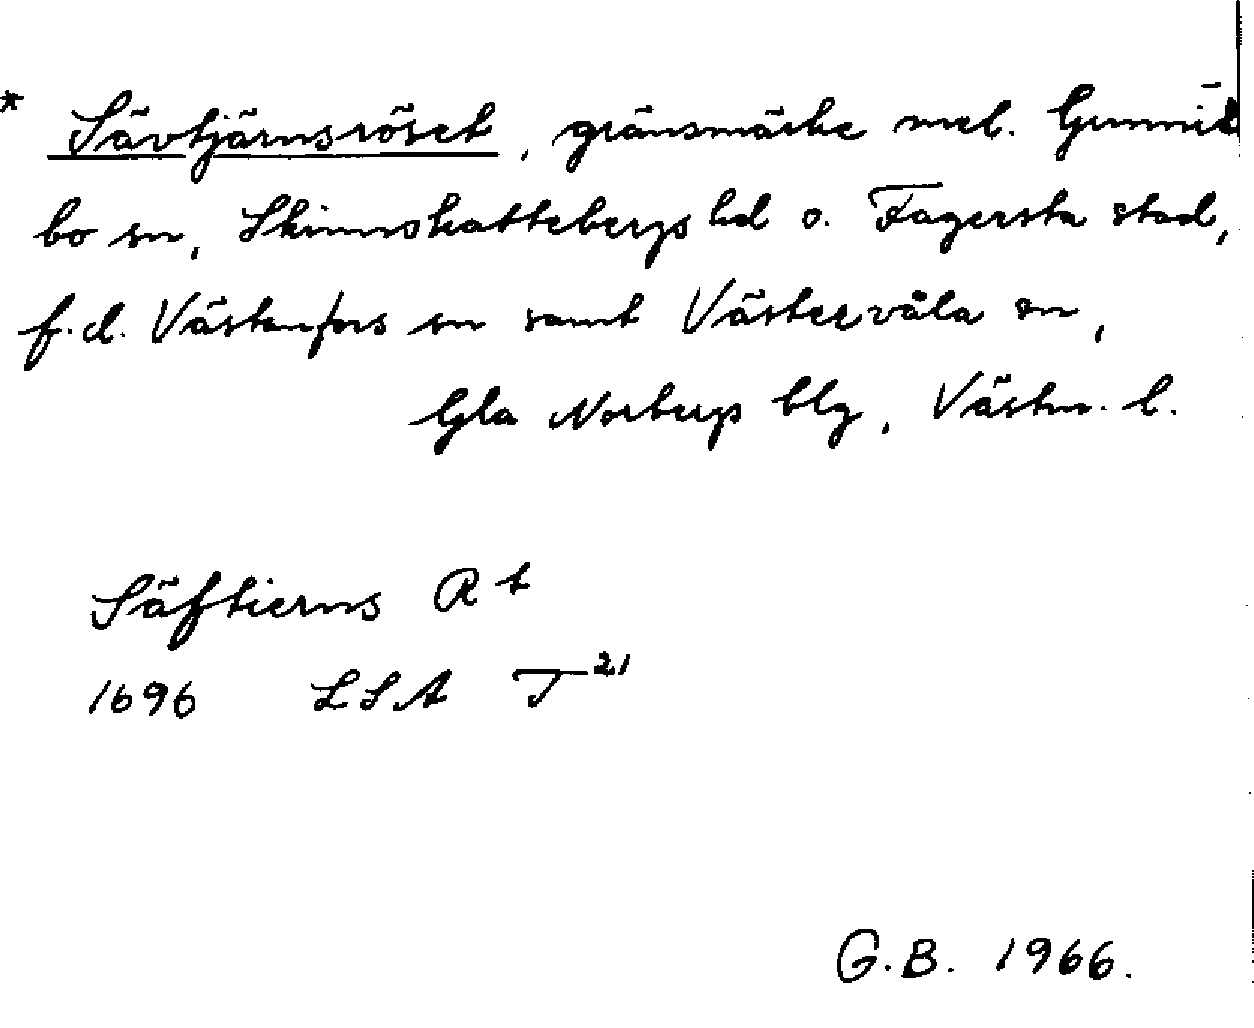 * Sävtjärnsröset, gränsmärke mel. Gunnil
bo sn, Skinnskattebergs hd o. Fagersta stad,
f.d. Västanfors sn samt Västervåla sn,
Gla Norbergs blg, Västm. l.
Säftierns R t
1696 LSA T 21
G.B. 1966.